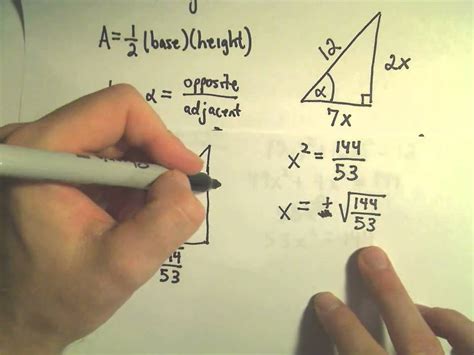 A = 1/2 (base)(height)
α = opposite/adjacent
12
2x
α
7x
x² = 144/53
x = ± √144/53
144/53